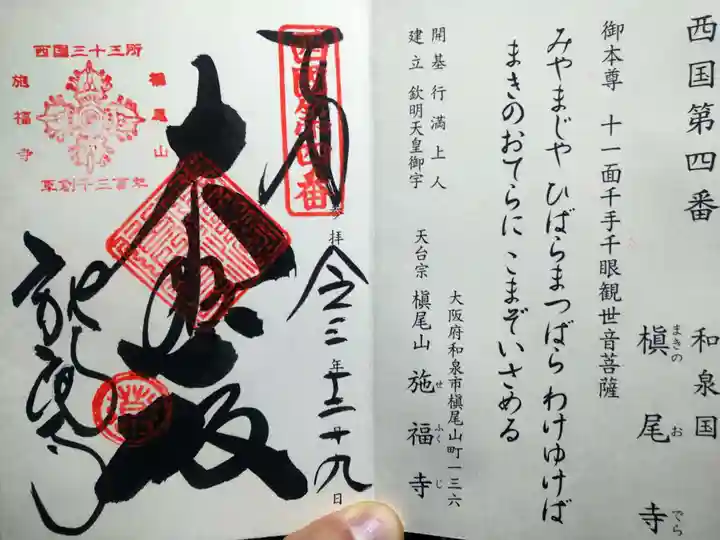 西国第四番
和泉国
槇尾寺
まきのおでら
御本尊 十一面千手千眼観世音菩薩
みやまじや ひばらまつばら わけゆけば
まきのおてらに こまぞいさめる
開基 行満上人
建立 欽明天皇御宇
大阪府和泉市槇尾山町一三六
天台宗 槇尾山 施福寺
せふくじ
奉
西国第四番
参拝
令三年十二月十九日
大悲殿
施福寺
西国三十三所
槇尾山
施福寺
草創千三百年